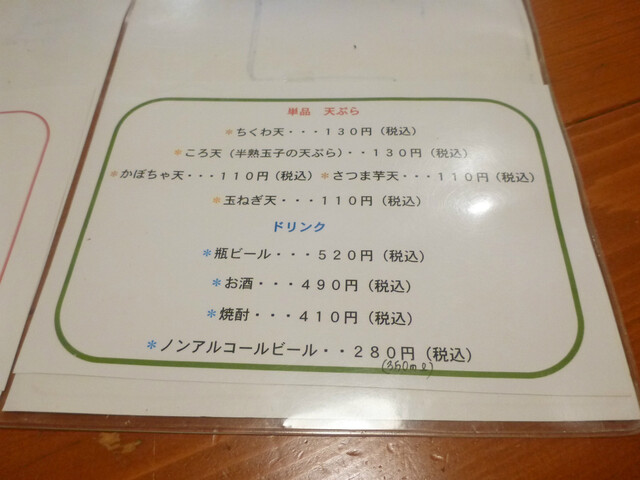 単品　天ぷら
*ちくわ天・・・１３０円（税込）
*ころ天（半熟玉子の天ぷら）・・１３０円（税込）
*かぼちゃ天・・・１１０円（税込）*さつま芋天・・・１１０円（税込）
*玉ねぎ天・・・１１０円（税込）
ドリンク
*瓶ビール・・・５２０円（税込）
*お酒・・・４９０円（税込）
*焼酎・・・４１０円（税込）
*ノンアルコールビール・・２８０円（税込）
(350mℓ)